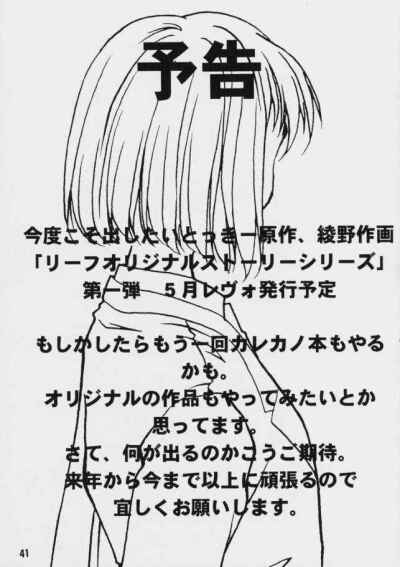 予告
今度こそ出したいとっきー原作、綾野作画
「リーフオリジナルストーリーシリーズ」
第一弾　５月レヴォ発行予定
もしかしたらもう一回カレカノ本もやる
かも。
オリジナルの作品もやってみたいとか
思ってます。
さて、何が出るのかこうご期待。
来年から今まで以上に頑張るので
宜しくお願いします。
41